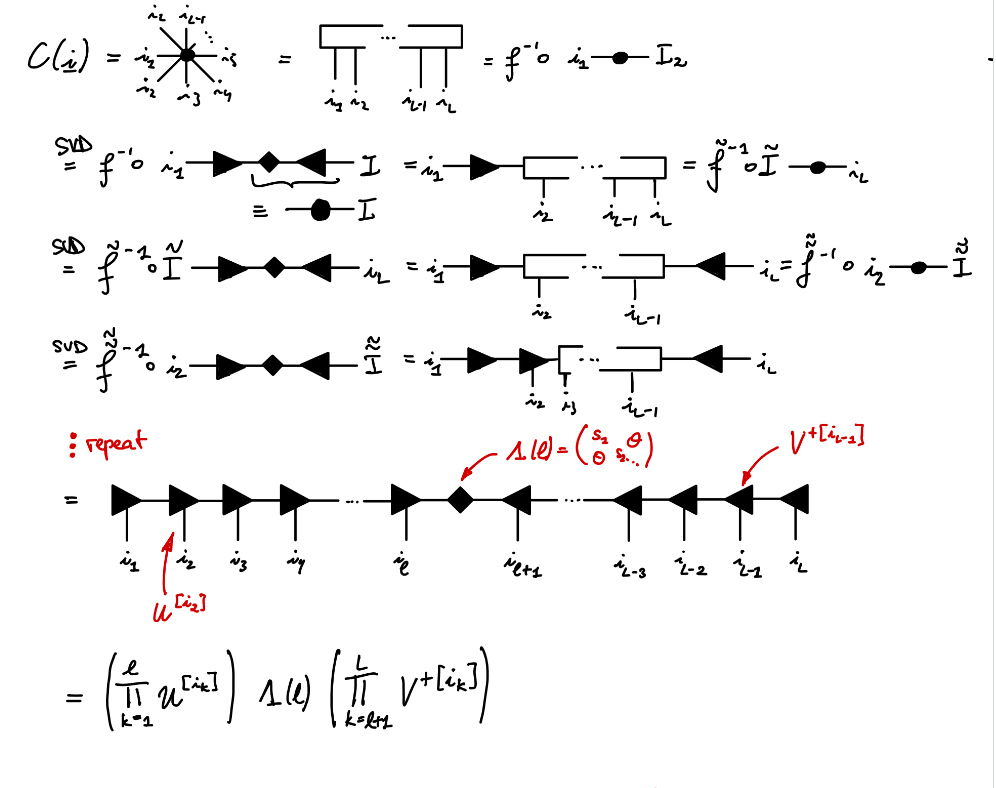 C(i) = i_L i_{L-1} ⋱ i_2 i_5 i_2 i_3 i_4 = ⋯ i_1 i_2 i_{L-1} i_L = f^{-1}∘ i_1 I_2
SVD = f^{-1}∘ i_1 I = i_1 ⋯ i_2 i_{L-1} i_L = f̃^{-1}∘ Ĩ i_L
≡ I
SVD = f̃^{-1}∘ Ĩ i_L = i_1 ⋯ i_2 i_{L-1} i_L = f̃̃^{-1}∘ i_2 Ĩ̃
SVD = f̃̃^{-1}∘ i_2 Ĩ̃ = i_1 ⋯ i_2 i_3 i_{L-1} i_L
⋮ repeat Λ(l) = (S_1 0 0 S_2 ⋱) V^{+[i_{L-1}]}
= ⋯ ⋯
i_1 i_2 i_3 i_4 i_l i_{l+1} i_{L-3} i_{L-2} i_{L-1} i_L
U^{[i_2]}
= (∏_{k=1}^{l} U^{[i_k]}) Λ(l) (∏_{k=l+1}^{L} V^{+[i_k]})